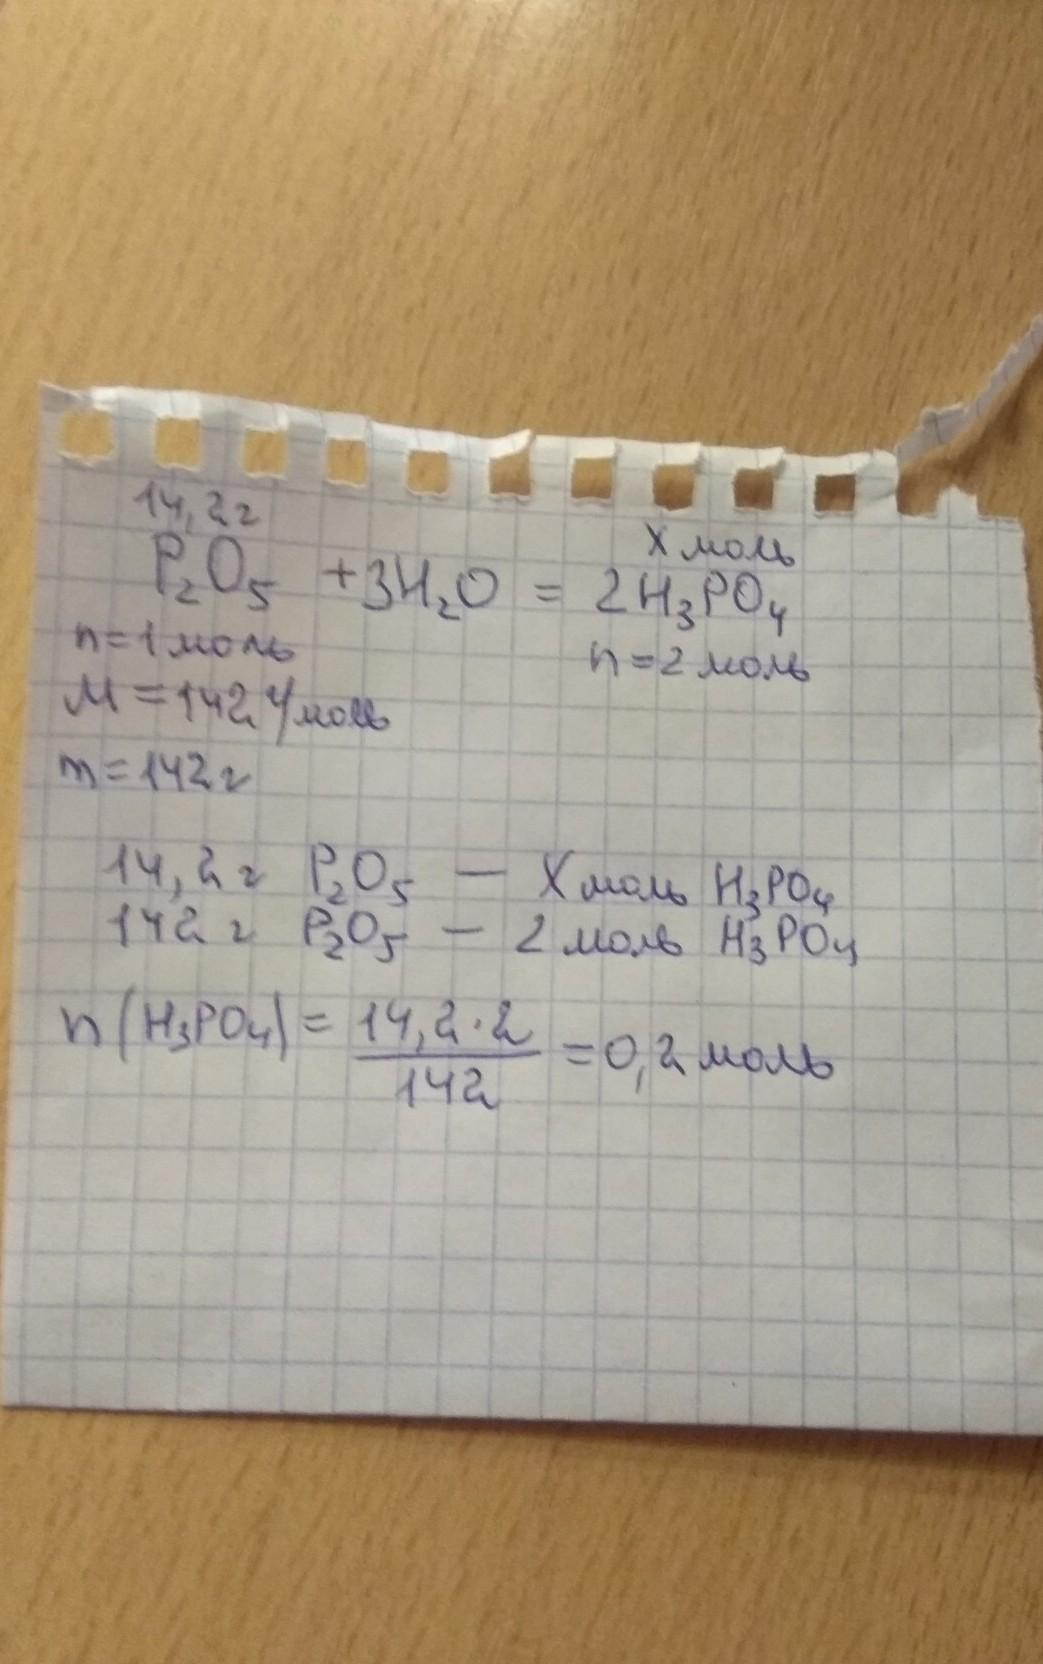 14,2г
X моль
P₂O₅ + 3H₂O = 2H₃PO₄
n = 1 моль
n = 2 моль
M = 142 г/моль
m = 142 г
14,2 г P₂O₅ — X моль H₃PO₄
142 г P₂O₅ — 2 моль H₃PO₄
n (H₃PO₄) = 14,2 · 2 / 142 = 0,2 моль